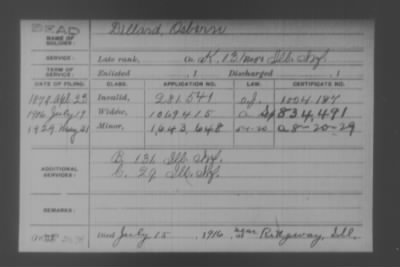 DEAD
NAME OF SOLDIER: Dillard, Osborn
SERVICE: Late rank, Co. K, 131 Ills. Inf.
TERM OF SERVICE: Enlisted , 1 Discharged , 1
DATE OF FILING. CLASS. APPLICATION NO. LAW. CERTIFICATE NO.
Apl 23 Invalid, 281.541 1004.187
1916 July 19 Widow, 1069415 Sep 834,491
1929 Aug 21 Minor, 1,643,648 a 8-20-29
ADDITIONAL SERVICES: B 131 Ill. Inf.
C. 29 Ill. Inf.
REMARKS:
Died July 15, 1916 Ridgway, Ill.